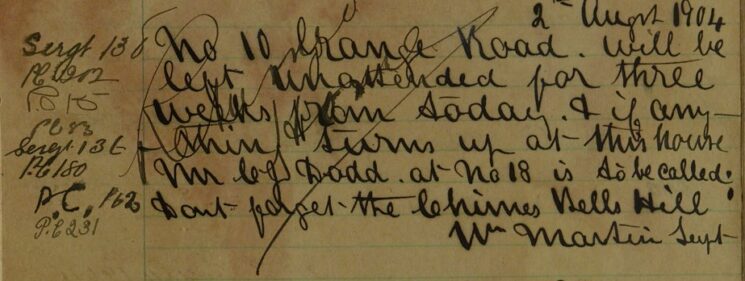 2nd Augst 1904
Sergt 136 No 10 Grange Road. will be
PC 202 left unattended for three
PC 15 weeks from today. & if any-
PC 83 thing turns up at this house
Sergt 136
PC 180 Mr Dodd. at No 18 is to be called.
P.C. P62 Dont forget the Chimes Bells Hill
P.C 231 Wm Martin Supt